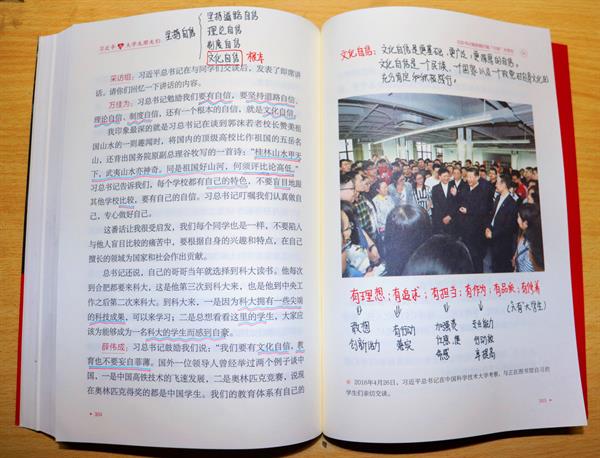 坚持自信
坚持道路自信
理论自信
制度自信
文化自信 根本
习近平与大学生朋友们
采访组：习近平总书记在与同学们交谈后，发表了即席讲
话。请你们回忆一下讲话的内容。
万佳为：习总书记勉励我们要有自信，要坚持道路自信、
理论自信、制度自信，还有一个根本的自信，就是文化自信。
我印象最深的就是习总书记在谈到郭沫若老校长赞美祖
国山水的一则趣闻时，将国内的顶级高校比作祖国的五岳名
山，还背出国务院原副总理谷牧写的一首诗：“桂林山水甲天
下，武夷山水亦神奇。同是祖国好山河，何须评比论高低。”
习总书记告诉我们，每个学校都有自己的特色，不要盲目地跟
其他学校比较，要有自己的自信。习总书记叮嘱我们认真做自
己，专心做好自己。
这番话让我很受启发，我们每个同学也是一样，不要陷入
与他人盲目比较的痛苦中，要根据自身的兴趣和特点，在自己
擅长的领域为国家和社会作出贡献。
总书记还说，自己的哥哥当年就选择到科大读书。他每次
到合肥都要来科大，这是他第三次到科大来，也是他到中央工
作之后第二次来科大。到科大来，一是因为科大拥有一些尖端
的科技成果，可以来学习；二是总想看看这里的学生，大家应
该为能够成为一名科大的学生而感到自豪。
薛伟成：习总书记鼓励我们说：“我们要有文化自信，教
育也不要妄自菲薄。国外一位领导人曾经举过两个例子谈中
国，一是中国高铁技术的飞速发展，二是奥林匹克竞赛，说现
在奥林匹克得奖的都是中国学生。我们的教育体系有自己的
304
文化自信：文化自信是更基础，更广泛，更深厚的自信。
文化自信是一个民族、一个国家以及一个政党对自身文化的
充分肯定和积极践行。
有理想；有追求；有担当；有作为；有品质；有修养
（六有大学生）
敢想 有行动
创新活力 务实
※ 2016年4月26日，习近平总书记在中国科学技术大学考察，与正在图书馆自习的
学生们亲切交谈。
305